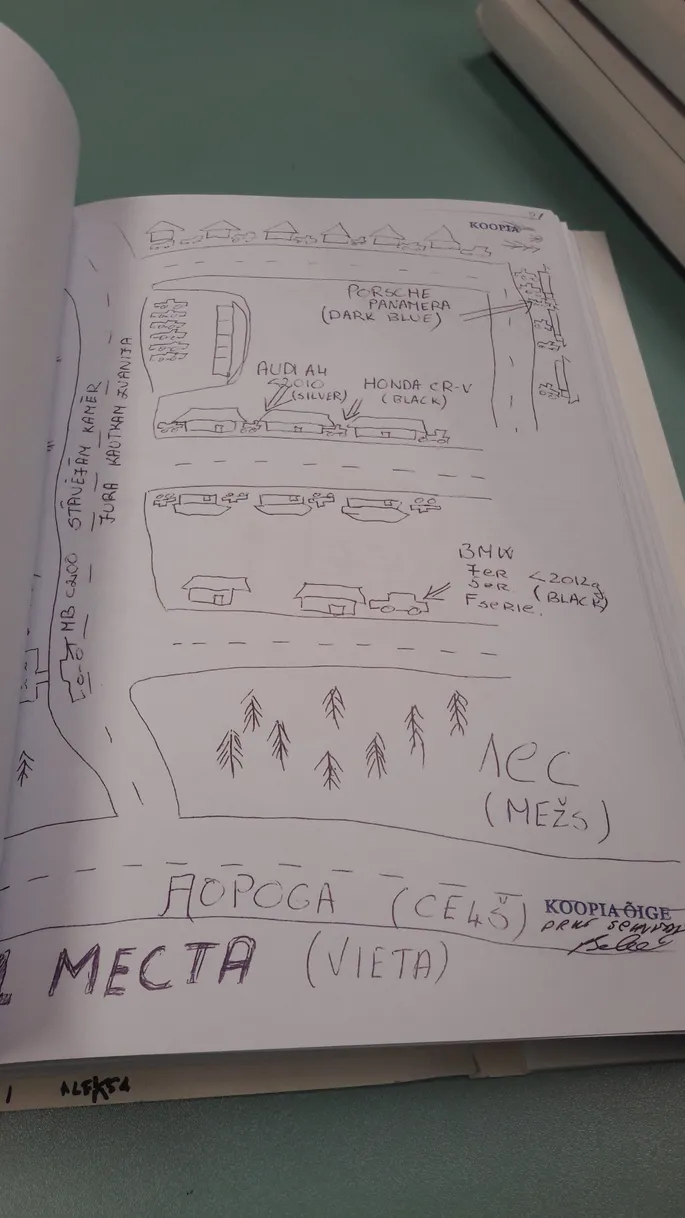 KOOPIA
PORSCHE
PANAMERA
(DARK BLUE)
AUDI A4
<2010
(SILVER)
HONDA CR-V
(BLACK)
STĀVĒJĀM KAMĒR
JURA KAUTKAM ZVANIJA
MB C200
BMW
7er <2012g
ser. (BLACK)
F serie.
ЛЕС
(MEŽS)
ДОРОГА (CEĻŠ)
KOOPIA ÕIGE
МЕСТА (VIETA)
ALEKSA